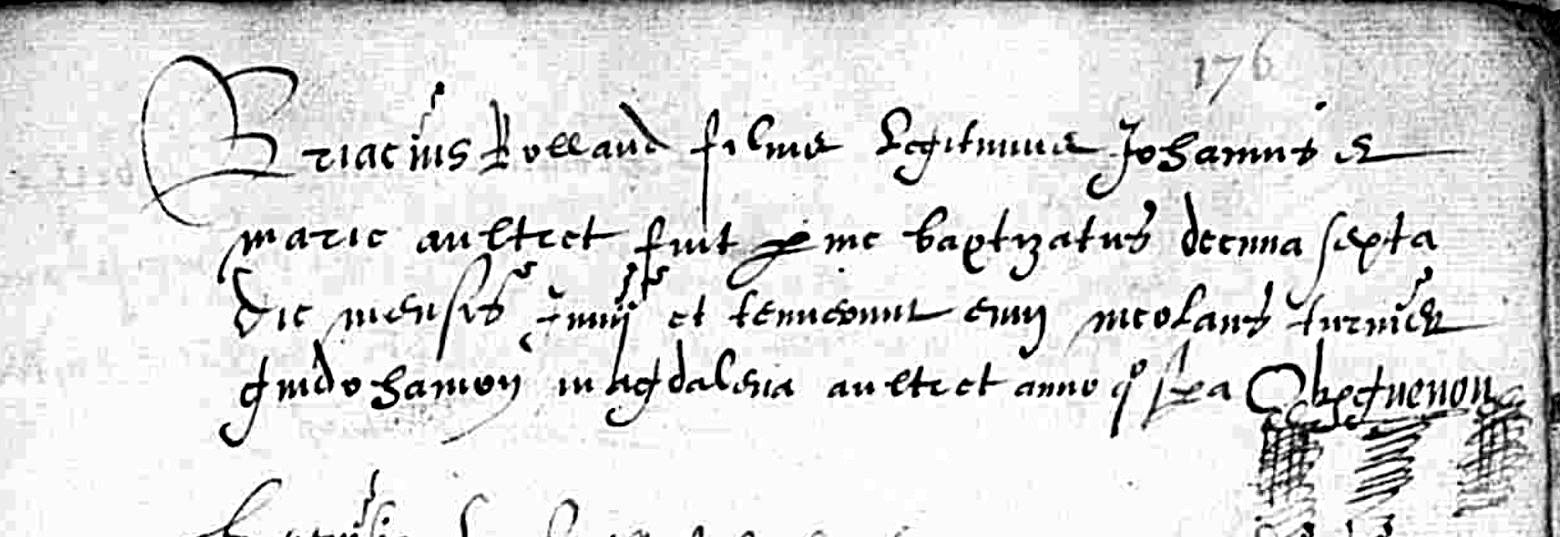 176
Briacius Rolland filius Legitimus Johannis et
marie aultret fuit p me baptizatus decima sexta
die mensis Junij et tenuerunt eum nicolaus turnier
guido hamon magdalena aultret anno qo supra